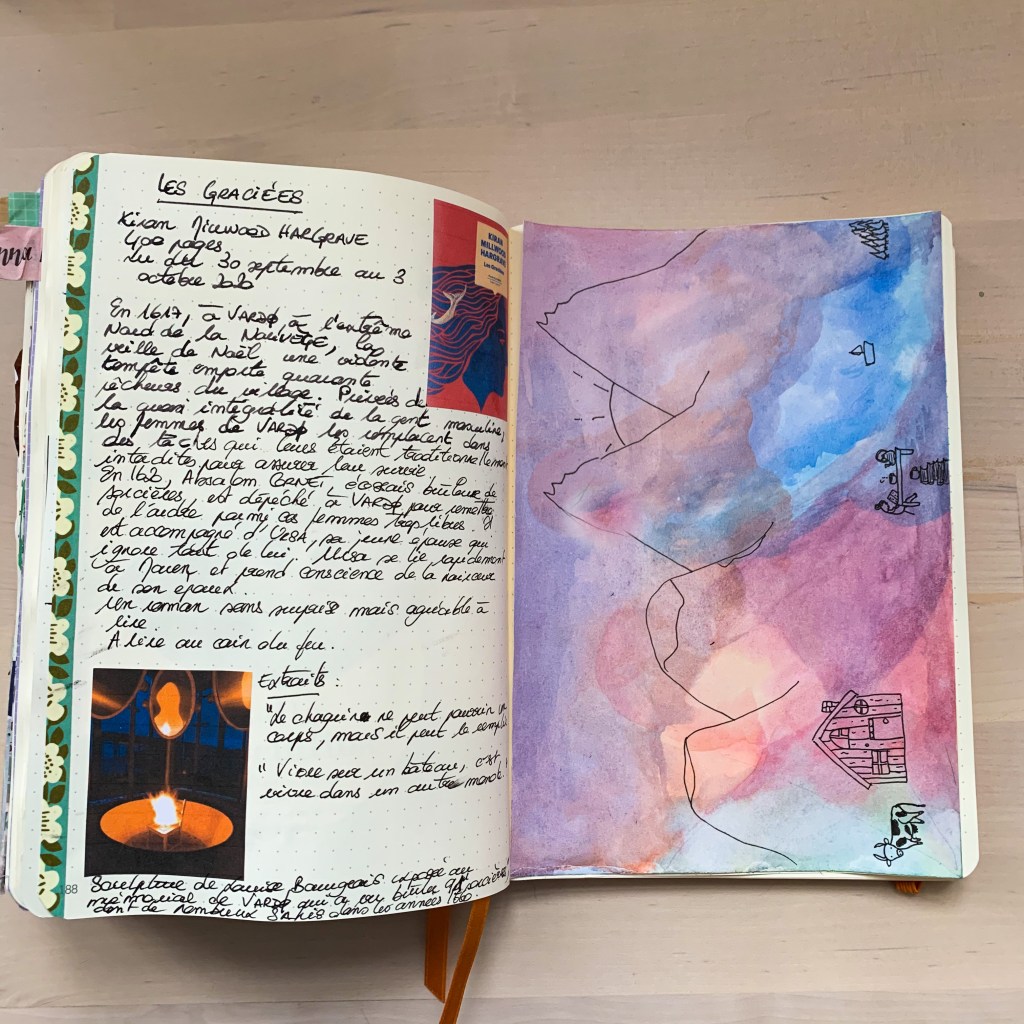 LES GRACIÉES
Kiran MILLWOOD HARGRAVE
400 pages
lu du 30 septembre au 3
octobre 2020
En 1617, à VARDØ, à l'extrême
Nord de la NORVÈGE, la
veille de Noël une violente
tempête emporte quarante
pêcheurs du village. Privées de
la quasi intégralité de la gent masculine,
les femmes de VARDØ les remplacent dans
des tâches qui leurs étaient traditionnellement
interdites pour assurer leur survie.
En 162, Absalom CORNET, écossais brûleur de
sorcières, est dépêché à VARDØ pour remettre
de l'ordre parmi ces femmes trop libres. Il
est accompagné d'URSA, sa jeune épouse qui
ignore tout de lui. Ursa se lie rapidement
à Maren et prend conscience de la noirceur
de son époux.
Un roman sans surprise mais agréable à
lire
A lire au coin du feu.
KIRAN
MILLWOOD
HARGRAVE
Les Graciées
Extraits :
"Le chagrin ne peut nourrir un
corps, mais il peut le remplir
" Vivre sur un bateau, c'est
vivre dans un autre monde.
188
Sculpture de Louise Bourgeois exposée au
mémorial de VARDØ qui a vu brûler 91 sorcières
dont de nombreux SAMIS dans les années 1600.
nna